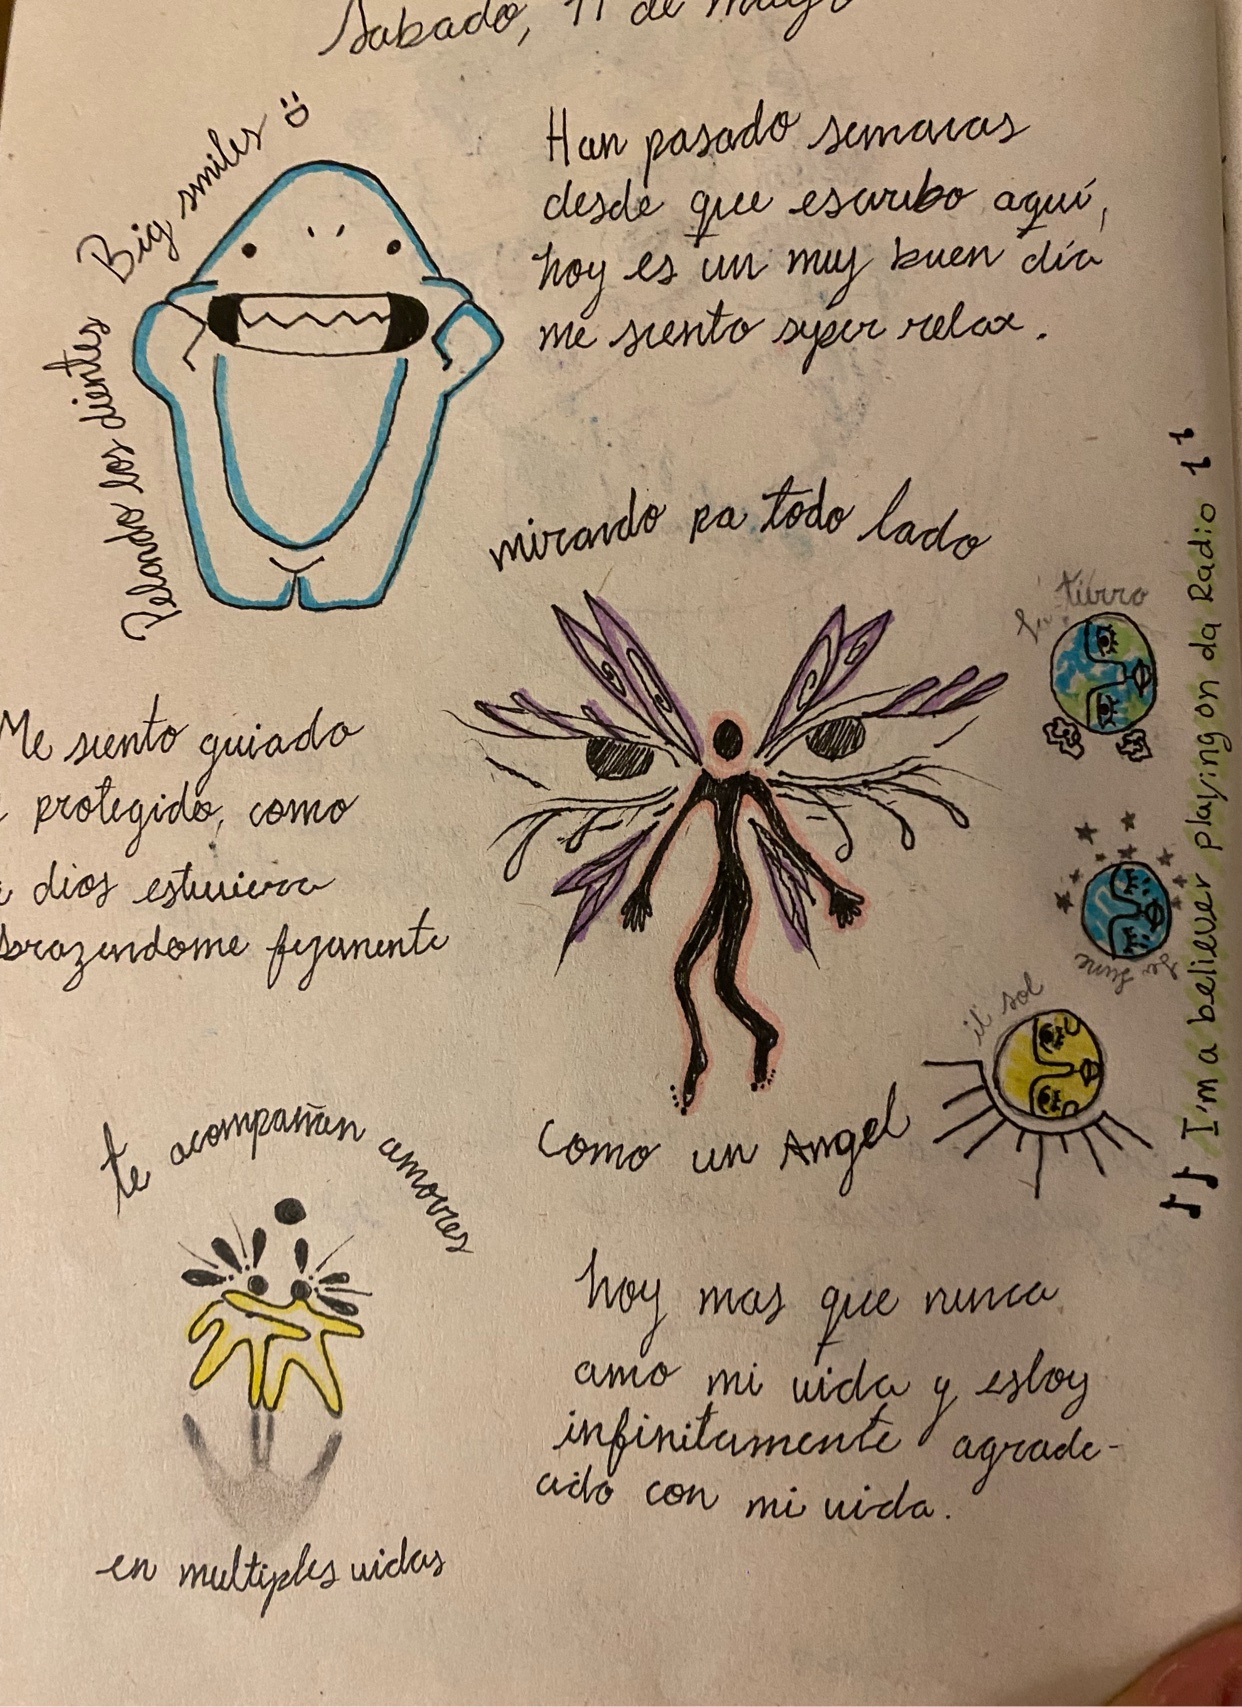 Sabado, 11 de mayo
Big smiles
Pelando los dientes
Han pasado semanas
desde que escribo aquí,
hoy es un muy buen día
me siento super relax.
mirando pa todo lado
la tierra
Me siento guiado
protegido, como
dios estuviera
abrazandome fijamente
la luna
el sol
I'm a believer playing on da Radio
como un Angel
te acompañan amores
en multiples vidas
hoy mas que nunca
amo mi vida y estoy
infinitamente agrade-
cido con mi vida.